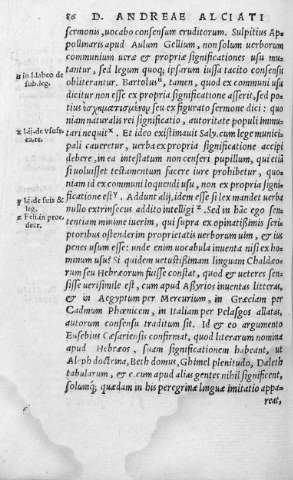 86 D. ANDREAE ALCIATI
sermonis, uocabo consensum eruditorum. Sulpitius Ap=
pollinaris apud Aulum Gellium, non solum uerborum
communium uera & propria significationes usu mu=
tantur, sed legum quoq; ipsarum iussa tacito consensu
obliterantur. Bartolus, tamen, quod ex communi usu
dicitur non esse ex propria significatione asserit, sed po=
tius seu ex figurato sermone dici: quo
niam naturalis rei significatio, autoritate populi immu=
tari nequit. Et ideo existimauit Saly. cum lege munici=
pali caueretur, uerba ex propria significatione accipi
debere, in ea intestatum non censeri pupillum, qui etiā
si uoluisset testamentum facere iure prohibetur, quo=
niam id ex communi loquendi usu, non ex propria signi=
ficatione est. Addunt alij, idem esse si lex mandet uerba
nullo extrinsecus addito intelligi. Sed in hāc ego sen=
tentiam minime iuerim, qui supra ex opinatißimis scri=
ptoribus ostenderim proprietati uerborum uim, & iu=
penes usum esse: unde enim uocabula inuenta nisi ex ho=
minum usu? Si quidem uetustißimam linguam Chaldæo=
rum seu Hebræorum fuisse constat, quod & ueteres sen=
sisse uerisimile est, cum apud Aßyrios inuentas litteras,
& in Aegyptum per Mercurium, in Græciam per
Cadmum Phœnicem, in Italiam per Pelasgos allatas,
autorum consensu traditum sit. Id & eo argumento
Eusebius Cæsariensis confirmat, quod literarum nomina
apud Hebræos, suam significationem habeant, ut
Aleph doctrina, Beth domus, Ghimel plenitudo, Daleth
tabularum, & c. cum apud alias gentes nihil significent,
solumq; quædam in his peregrinæ linguæ imitatio appa=
reat,
in l. labeo de
sup. leg.
de usufr.
leg.